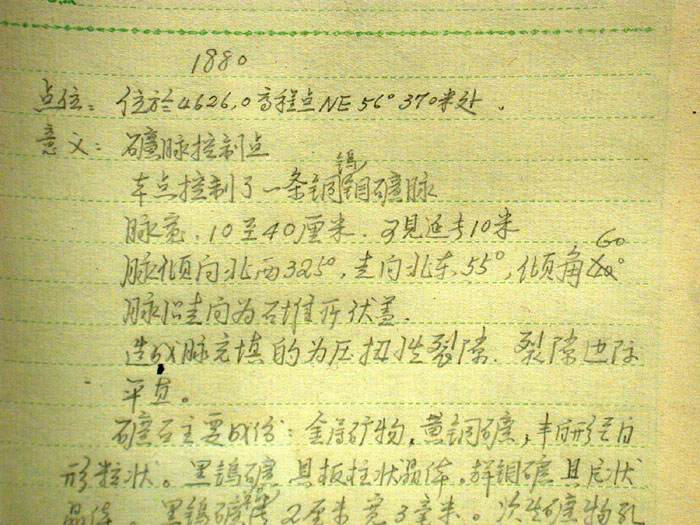 1880
点位：位於4626.0高程点NE56°370米处．
意义：礦脉控制点
本点控制了一条铜钨钼礦脉
脉宽．10至40厘米．可見延长10米
脉倾向北西325°，走向北东55°，倾角60°
脉沿走向为石堆所伏盖．
造成脉充填的为压扭性裂隙．裂隙边际
平直。
礦石主要成份：金属矿物，黄铜礦，半自形至自
形粒状。黑钨礦具板柱状晶体．辉钼礦具片状
晶体。黑钨礦 2厘米宽3毫米。次生礦物孔